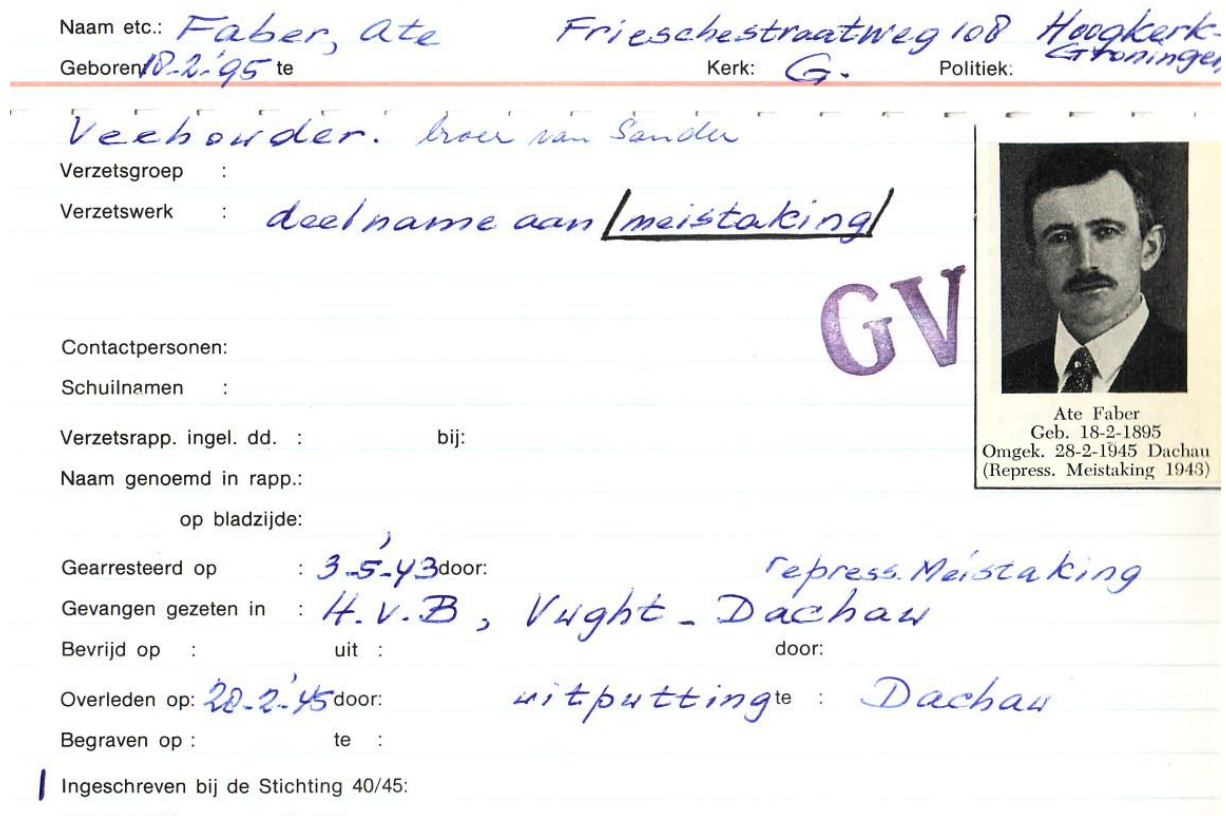 Naam etc.: Faber, Ate Frieschestraatweg 108 Hoogkerk-
Groningen
Geboren 18-2-'95 te Kerk: G. Politiek:
Veehouder. broer van Sander
Verzetsgroep :
Verzetswerk : deelname aan /meistaking/
GV
Contactpersonen:
Schuilnamen :
Ate Faber
Geb. 18-2-1895
Omgek. 28-2-1945 Dachau
(Repress. Meistaking 1943)
Verzetsrapp. ingel. dd. : bij:
Naam genoemd in rapp.:
op bladzijde:
Gearresteerd op : 3-5-'43 door: repress. Meistaking
Gevangen gezeten in : H.v.B, Vught - Dachau
Bevrijd op : uit : door:
Overleden op: 28-2-'45 door: uitputting te : Dachau
Begraven op : te :
Ingeschreven bij de Stichting 40/45: